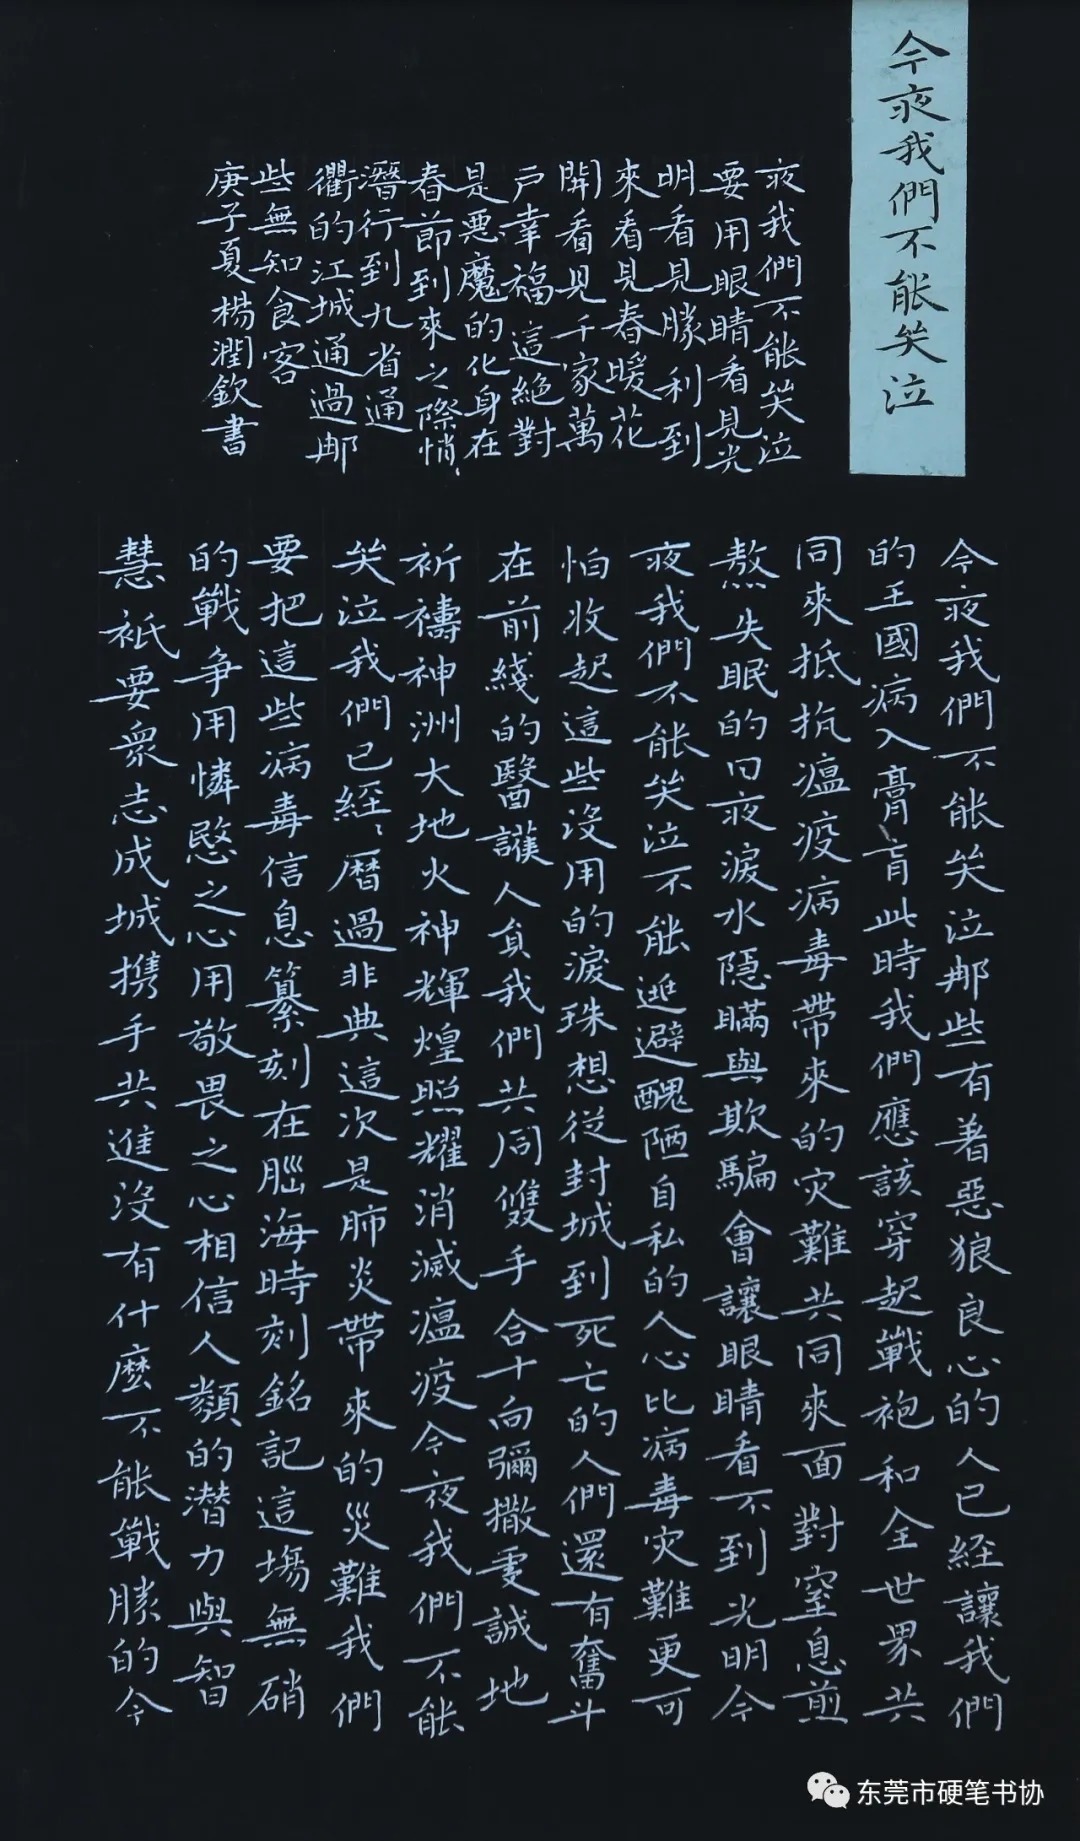 今夜我們不能哭泣
今夜我們不能哭泣那些有着惡狼良心的人已經讓我們
的王國病入膏肓此時我們應該穿起戰袍和全世界共
同來抵抗瘟疫病毒帶來的灾難共同來面對窒息煎
熬失眠的日夜淚水隱瞞與欺騙會讓眼睛看不到光明今
夜我們不能哭泣不能逃避醜陋自私的人心比病毒灾難更可
怕收起這些沒用的淚珠想從封城到死亡的人們還有奮斗
在前綫的醫護人員我們共同雙手合十向彌撒虔誠地
祈禱神洲大地火神輝煌照耀消滅瘟疫今夜我們不能
哭泣我們已經、曆過非典這次是肺炎帶來的災難我們
要把這些病毒信息纂刻在腦海時刻銘記這塲無硝
的戰争用憐愍之心用敬畏之心相信人類的潜力與智
慧祇要衆志成城携手共進沒有什麽不能戰勝的今
夜我們不能哭泣
要用眼睛看見光
明看見勝利到
來看見春暖花
開看見千家萬
户幸福這絶對
是惡魔的化身在
春節到來之際悄、
潛行到九省通
衢的江城通過那
些無知食客
庚子夏楊潤欽書
东莞市硬笔书协